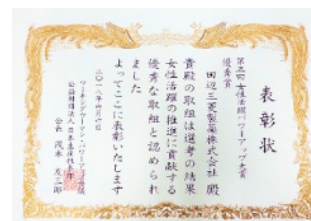 表彰状
第五回 女性活躍パワーアップ大賞
優秀賞
田辺三菱製薬株式会社 殿
貴殿の取組は選考の結果
女性活躍の推進に貢献する
優秀な取組と認められ
ました
よってここに表彰いたします
二〇一八年六月
ワーキングウーマン・パワーアップ会議
公益財団法人 日本生産性本部
会長 茂木 友三郎